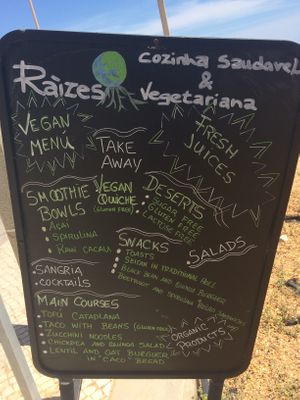 Raìzes
Cozinha Saudavel
&
Vegetariana
Vegan
Menú
Take
Away
Fresh
Juices
Smoothie
Bowls
• Açaí
• Spirulina
• Raw Cacau
Vegan
Quiche
(Gluten Free)
Deserts
• Sugar Free
• Gluten Free
• Lactose Free
Snacks
• Toasts
• Seitan in Traditional
• Black Bean and Burguer
• Beetroot and Spirulina
Salads
Sangria
Cocktails
Main Courses
• Tofú Cataplana
• Taco with Beans (Gluten Free)
• Zucchini Noodles
• Chickpea and Salad
• Lentil and Oat Burguer
in "Caco" Bread
Organic
Products